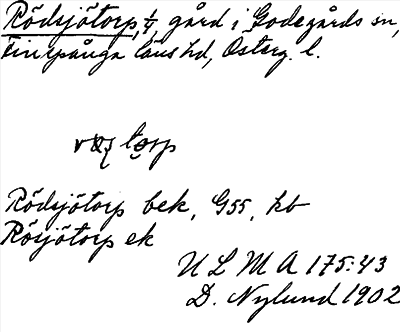 Rödsjötorp, 1/4, gård i Godegårds sn,
Finspånga läns hd, Österg. l.
torp
Rödsjötorp bek, G55, kb
Rösjötorp ek
U L M A 175:43
D. Nylund 1902